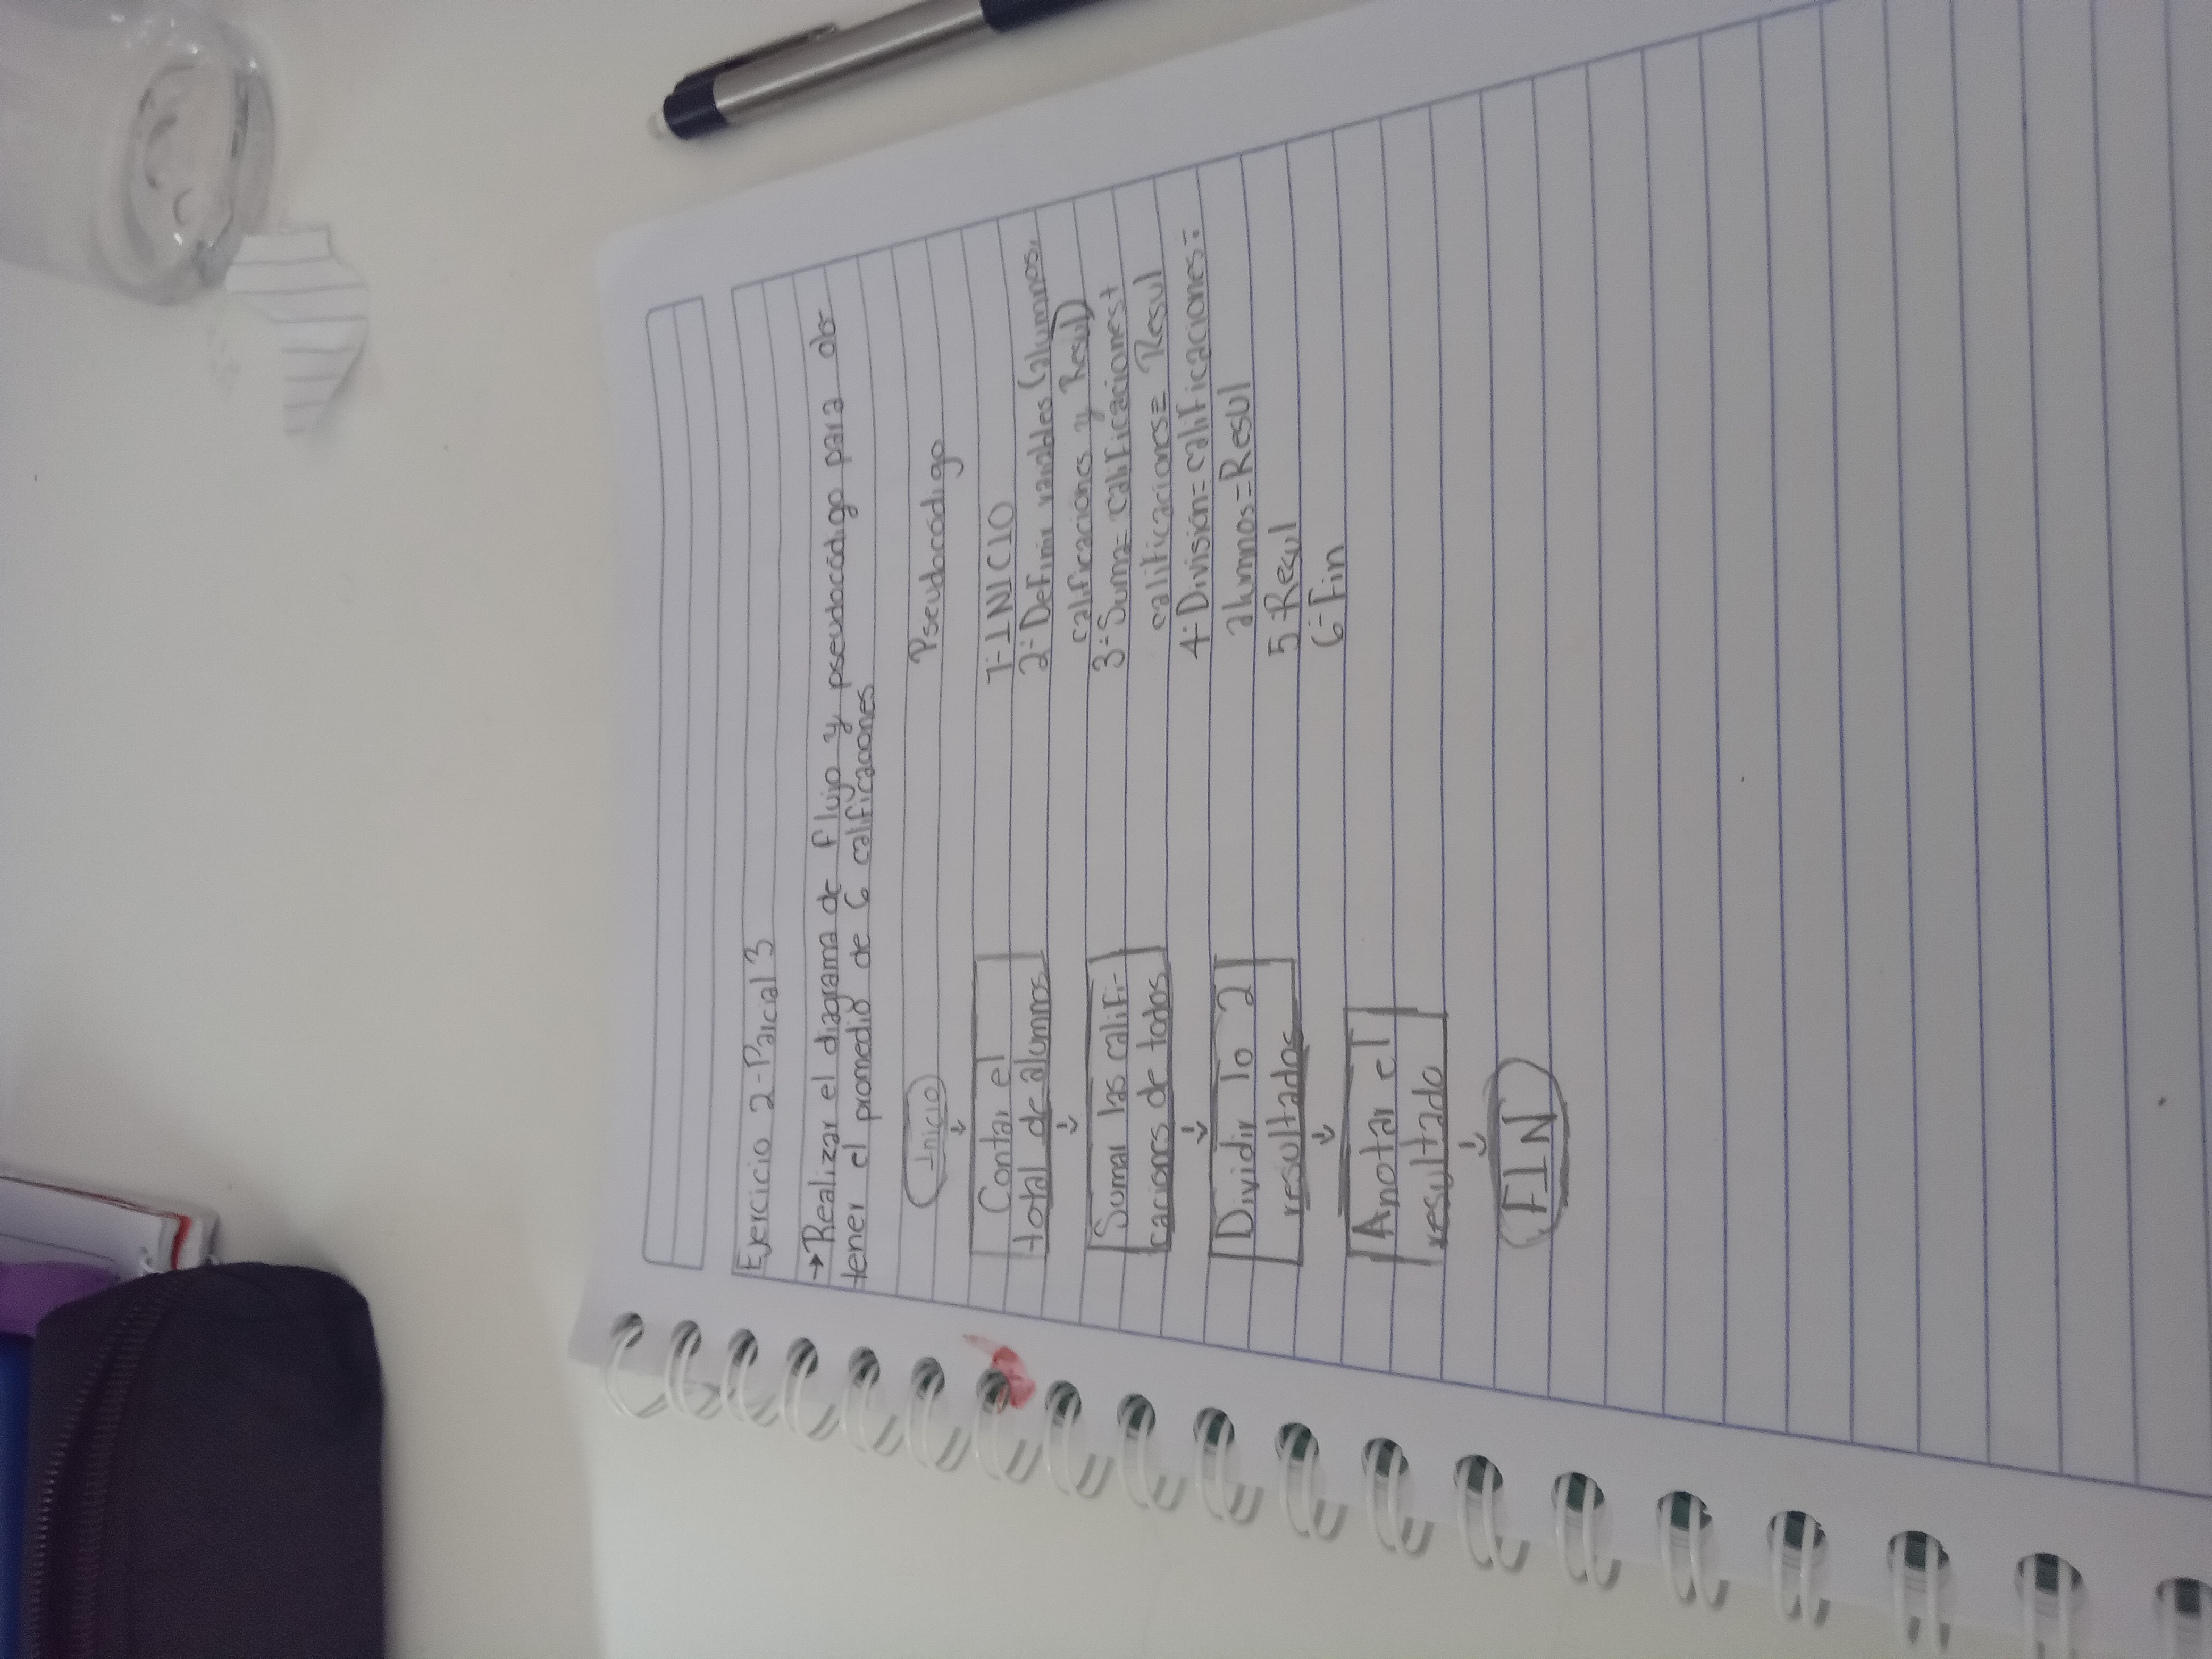 Ejercicio 2-Parcial 3
→Realizar el diagrama de flujo y pseudocódigo para ob-
tener el promedio de 6 calificaciones
Inicio
↓
Contar el
total de alumnos
↓
Sumar las califi-
caciones de todos
↓
Dividir lo 2
resultados
↓
Anotar el
resultado
↓
FIN
Pseudocódigo
1-INICIO
2-Definir variables (alumnos,
calificaciones y Resul)
3-Suma= calificaciones+
calificaciones= Resul
4-División=calificaciones÷
alumnos=Resul
5-Resul
6-Fin